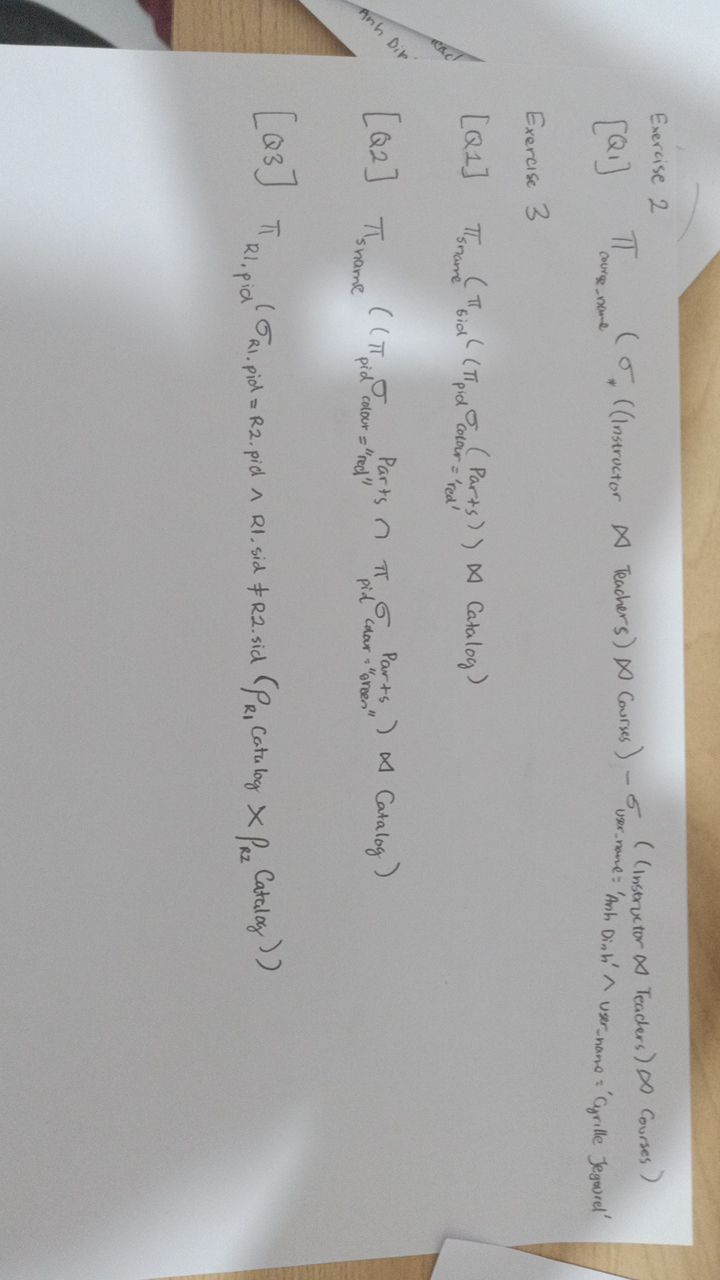 Anh Din
Exercise 2
[Q1] π course_name ( σ * ((Instructor ⋈ Teachers) ⋈ Courses) – σ user_name = 'Anh Dinh' ∧ user_name = 'Cyrille Jegourel' ( (Instructor ⋈ Teachers) ⋈ Courses )
Exercise 3
[Q1] π sname ( π sid ( (π pid σ colour = 'red' (Parts) ) ⋈ Catalog )
[Q2] π sname ( ( π pid σ colour = "red" Parts ∩ π pid σ colour = "green" Parts ) ⋈ Catalog )
[Q3] π R1.pid ( σ R1.pid = R2.pid ∧ R1.sid ≠ R2.sid ( ρ R1 Catalog × ρ R2 Catalog ) )